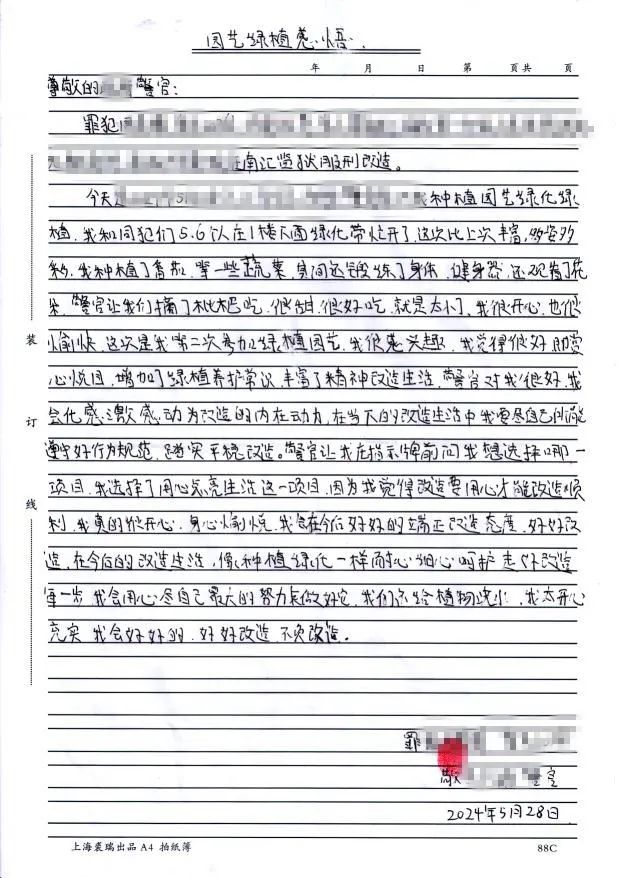 园艺绿植感悟.
年 月 日 第 页共 页
尊敬的 警官:
罪犯
在南汇监狱服刑改造。
今天 种植园艺绿化绿
植,我和同犯们5.6个人在1楼下面绿化带忙开了,这次比上次丰富,多姿多
彩,我种植了番茄,等一些蔬菜,其间还锻练了身体,健身器,还观赏了花
朵,警官让我们摘了枇杷吃,很甜,很好吃,就是太小了,我很开心,也很
愉快,这次是我第二次参加绿植园艺,我很感兴趣,我觉得很好即赏
心悦目,增加了绿植养护常识,丰富了精神改造生活,警官对我很好,我
会化感激感动为改造的内在动力,在当下的改造生活中我要尽自己所能
遵守好行为规范,踏实平稳改造。警官让我在指示牌前问我想选择哪一
项目,我选择了用心点亮生活这一项目,因为我觉得改造要用心才能改造顺
利,我真的很开心,身心愉悦,我会在今后好好的端正改造态度,好好改
造,在今后的改造生活,像种植绿化一样耐心细心呵护走好改造
每一步,我会用心尽自己最大的努力去做好它,我们 给植物浇水,我亦开心
充实,我会好好的,好好改造,不负改造。
罪
敬 警官
2024年5月28日.
装
订
线
上海裘瑞出品 A4 拍纸簿 88C